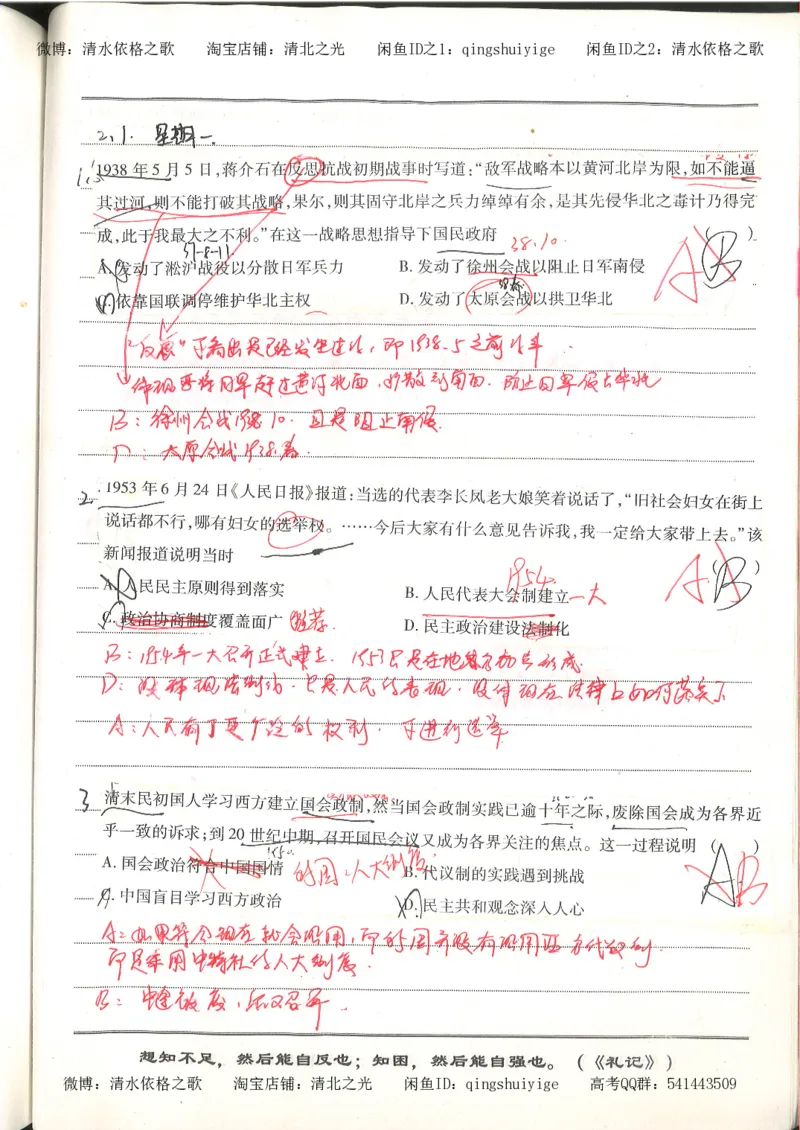 微博：清水依格之歌 淘宝店铺：清北之光 闲鱼ID之1：qingshuiyige 闲鱼ID之2：清水依格之歌
2.1. 星期一.
1. 1938年5月5日,蒋介石在反思抗战初期战事时写道:“敌军战略本以黄河北岸为限,如不能逼
其过河,则不能打破其战略,果尔,则其固守北岸之兵力绰绰有余,是其先侵华北之毒计乃得完
成,此于我最大之不利。”在这一战略思想指导下国民政府 ( B )
37-8-11 38.10.
A.发动了淞沪战役以分散日军兵力 B.发动了徐州会战以阻止日军南侵
C.依靠国联调停维护华北主权 D.发动了太原会战以拱卫华北
“反思”可看出是已经发生过的，即1938.5之前
B：徐州会战1938 10. 且是阻止南侵.
D：太原会战1938.春.
2. 1953年6月24日《人民日报》报道:当选的代表李长风老大娘笑着说话了,“旧社会妇女在街上
说话都不行,哪有妇女的选举权。……今后大家有什么意见告诉我,我一定给大家带上去。”该
新闻报道说明当时 ( B )
1954.
A.人民民主原则得到落实 B.人民代表大会制建立 一大
C.政治协商制度覆盖面广 推荐. D.民主政治建设法制化
B：1954年一大召开正式建立. 1953只是在地
D：没体现法制化.只是人民的表现.没体现在法律上如何落实了
A：人民有了更广泛的权利.可进行选举
3 清末民初国人学习西方建立国会政制,然当国会政制实践已逾十年之际,废除国会成为各界近
乎一致的诉求;到20世纪中期,召开国民会议又成为各界关注的焦点。这一过程说明 ( )
1950.
A.国会政治符合中国国情 B.代议制的实践遇到挑战
C.中国盲目学习西方政治 D.民主共和观念深入人心
A：如果符合现在就会沿用，即的国并没有沿用西方代议制.
即是采用中特社的人大制度.
B：中途被废，后又召开.
想知不足，然后能自反也；知困，然后能自强也。（《礼记》）
微博：清水依格之歌 淘宝店铺：清北之光 闲鱼ID：qingshuiyige 高考QQ群：541443509